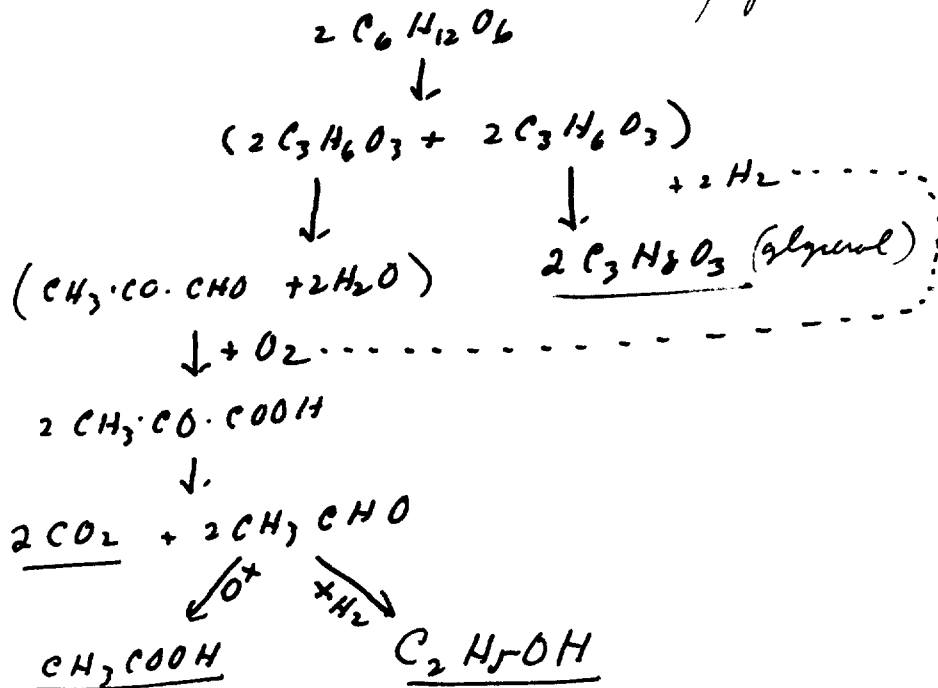 2 C₆H₁₂O₆
↓
(2 C₃H₆O₃ + 2 C₃H₆O₃)
↓ ↓ + 2 H₂
(CH₃·CO·CHO + 2H₂O) 2 C₃H₈O₃ (glycerol)
↓ + O₂
2 CH₃·CO·COOH
↓
2 CO₂ + 2 CH₃CHO
O⁺ +H₂
CH₃COOH C₂H₅OH